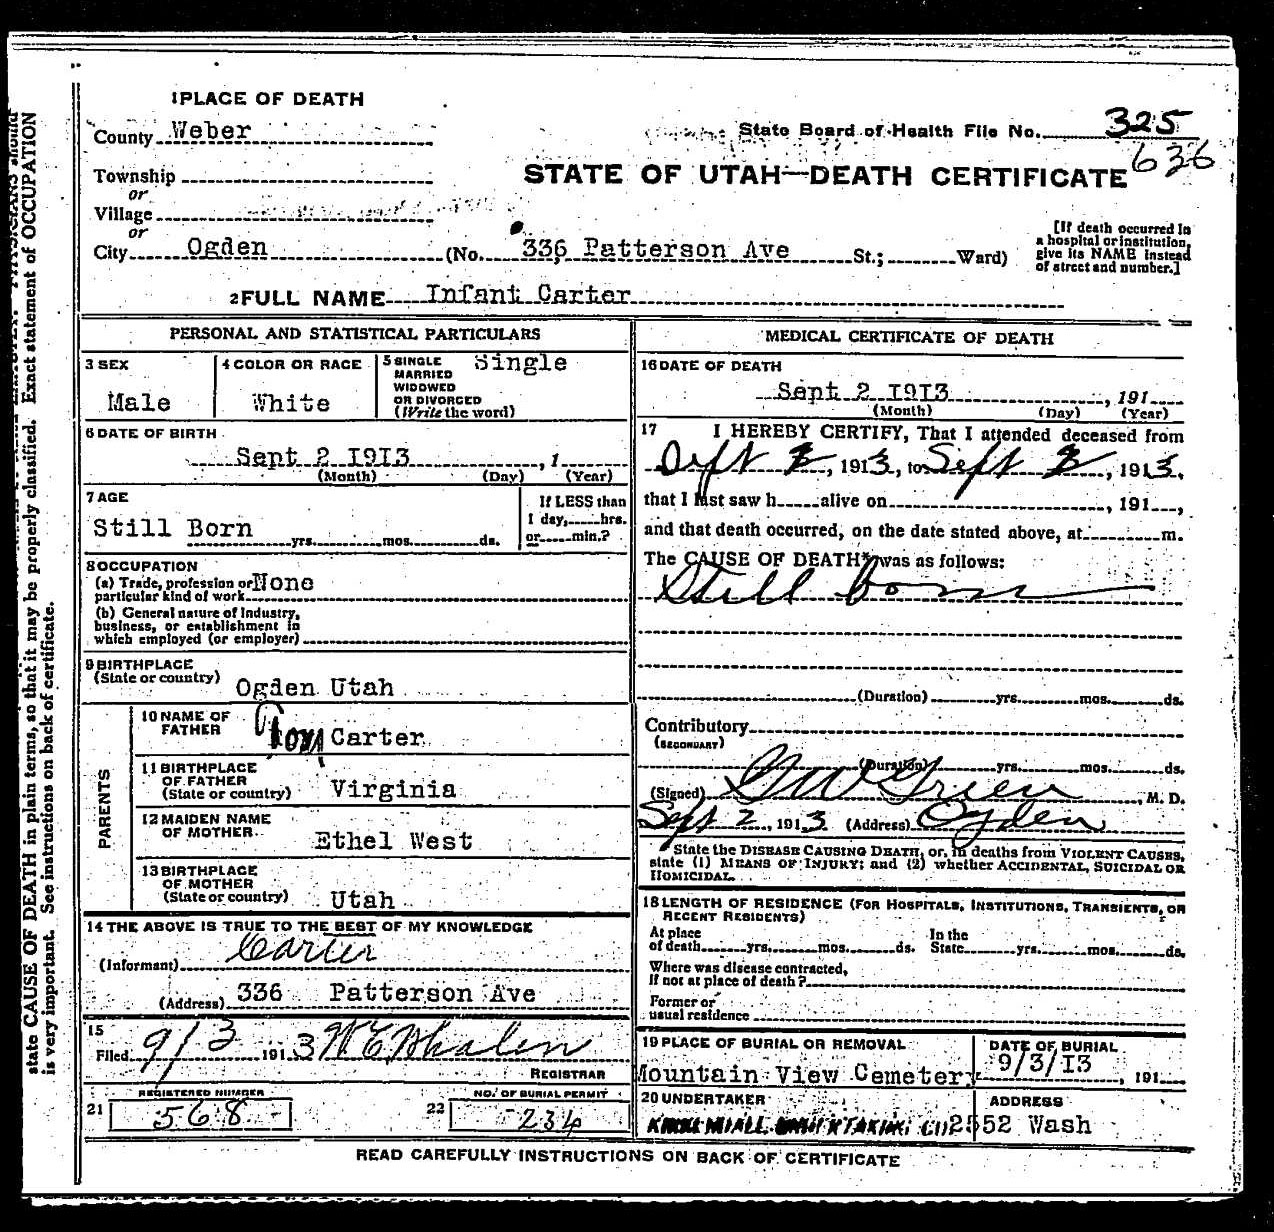 1 PLACE OF DEATH
County Weber
State Board of Health File No. 325
636
Township
or
Village
or
City Ogden (No. 336 Patterson Ave St.; Ward)
STATE OF UTAH—DEATH CERTIFICATE
[If death occurred in
a hospital or institution,
give its NAME instead
of street and number.]
2 FULL NAME Infant Carter
PERSONAL AND STATISTICAL PARTICULARS
3 SEX
Male
4 COLOR OR RACE
White
5 SINGLE
MARRIED
WIDOWED
OR DIVORCED
(Write the word)
Single
6 DATE OF BIRTH
Sept 2 1913, 1
(Month) (Day) (Year)
7 AGE
Still Born
yrs. mos. ds.
If LESS than
1 day, hrs.
or min.?
8 OCCUPATION
(a) Trade, profession or None
particular kind of work
(b) General nature of industry,
business, or establishment in
which employed (or employer)
9 BIRTHPLACE
(State or country) Ogden Utah
PARENTS
10 NAME OF
FATHER
Carter
11 BIRTHPLACE
OF FATHER
(State or country) Virginia
12 MAIDEN NAME
OF MOTHER
Ethel West
13 BIRTHPLACE
OF MOTHER
(State or country) Utah
14 THE ABOVE IS TRUE TO THE BEST OF MY KNOWLEDGE
(Informant) Carter
(Address) 336 Patterson Ave
15
Filed 9/3 1913 W E Whalen
REGISTRAR
REGISTERED NUMBER
21 568
NO. OF BURIAL PERMIT
22 234
MEDICAL CERTIFICATE OF DEATH
16 DATE OF DEATH
Sept 2 1913, 191
(Month) (Day) (Year)
17 I HEREBY CERTIFY, That I attended deceased from
Sept 2, 1913, to Sept 2, 1913,
that I last saw h alive on , 191 ,
and that death occurred, on the date stated above, at m.
The CAUSE OF DEATH* was as follows:
Still born
(Duration) yrs. mos. ds.
Contributory
(SECONDARY)
(Duration) yrs. mos. ds.
(Signed) G W Green, M. D.
Sept 2, 1913 (Address) Ogden
* State the DISEASE CAUSING DEATH, or, in deaths from VIOLENT CAUSES,
state (1) MEANS OF INJURY; and (2) whether ACCIDENTAL, SUICIDAL OR
HOMICIDAL.
18 LENGTH OF RESIDENCE (FOR HOSPITALS, INSTITUTIONS, TRANSIENTS, OR
RECENT RESIDENTS)
At place
of death yrs. mos. ds.
In the
State yrs. mos. ds.
Where was disease contracted,
if not at place of death?
Former or
usual residence
19 PLACE OF BURIAL OR REMOVAL
Mountain View Cemetery
DATE OF BURIAL
9/3/13, 191
20 UNDERTAKER
ADDRESS
2552 Wash
READ CAREFULLY INSTRUCTIONS ON BACK OF CERTIFICATE
state CAUSE OF DEATH in plain terms, so that it may be properly classified. Exact statement of OCCUPATION
is very important. See instructions on back of certificate.